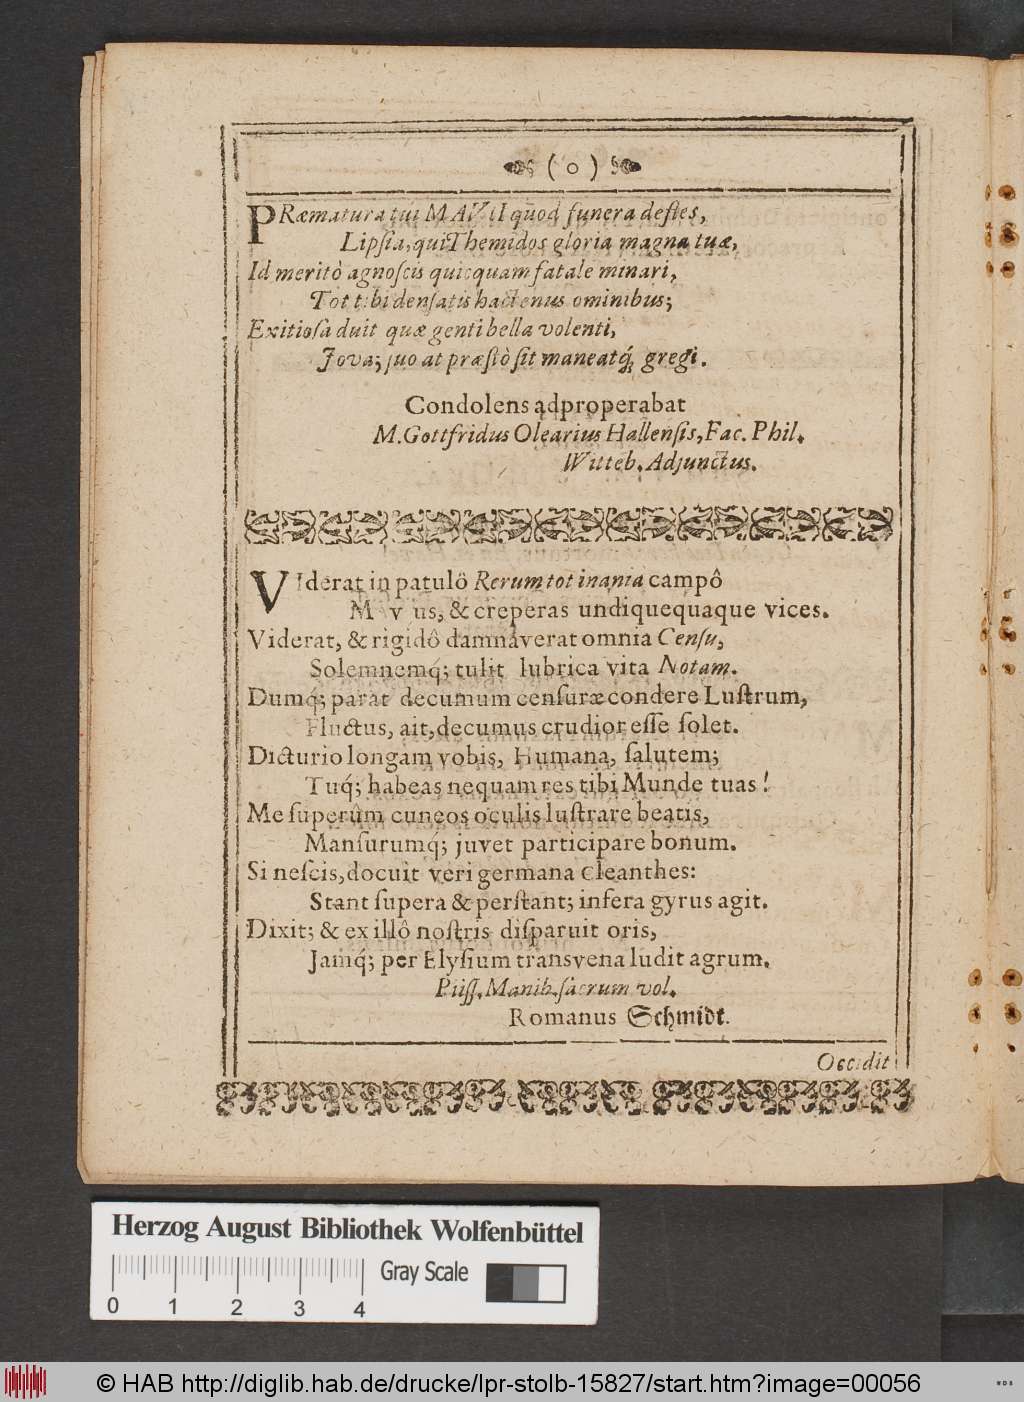 ( o )
PRæmatura tui MAVII quod funera defles,
Lipsia, qui Themidos gloria magna tuæ,
Id meritò agnoscis quicquam fatale minari,
Tot tibi densatis hactenus ominibus;
Exitiosa duit quæ genti bella volenti,
Jova; suo at præstò sit maneatq́; gregi.
Condolens adproperabat
M. Gottfridus Olearius Hallensis, Fac. Phil.
Witteb. Adjunctus.
VIderat in patulô Rerum tot inania campô
M v ius, & creperas undiquequaque vices.
Viderat, & rigidô damnaverat omnia Censu,
Solemnemq́; tulit lubrica vita Notam.
Dumq́; parat decumum censuræ condere Lustrum,
Fluctus, ait, decumus crudior esse solet.
Dicturio longam vobis, Humana, salutem;
Tuq́; habeas nequam res tibi Munde tuas!
Me superûm cuneos oculis lustrare beatis,
Mansurumq́; juvet participare bonum.
Si nescis, docuit veri germana Cleanthes:
Stant supera & perstant; infera gyrus agit.
Dixit; & ex illô nostris disparuit oris,
Jamq́; per Elysium transvena ludit agrum.
Piiss. Manib. sacrum vol.
Romanus Schmidt.
Occidit
Herzog August Bibliothek Wolfenbüttel
Gray Scale
0 1 2 3 4
© HAB http://diglib.hab.de/drucke/lpr-stolb-15827/start.htm?image=00056